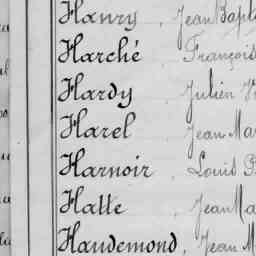 Hanry, Jean Bapt
Harché François
Hardy Julien Fr
Harel Jean Mar
Harnoir, Louis
Hatte, Jean Ma
Haudemond, Jean M